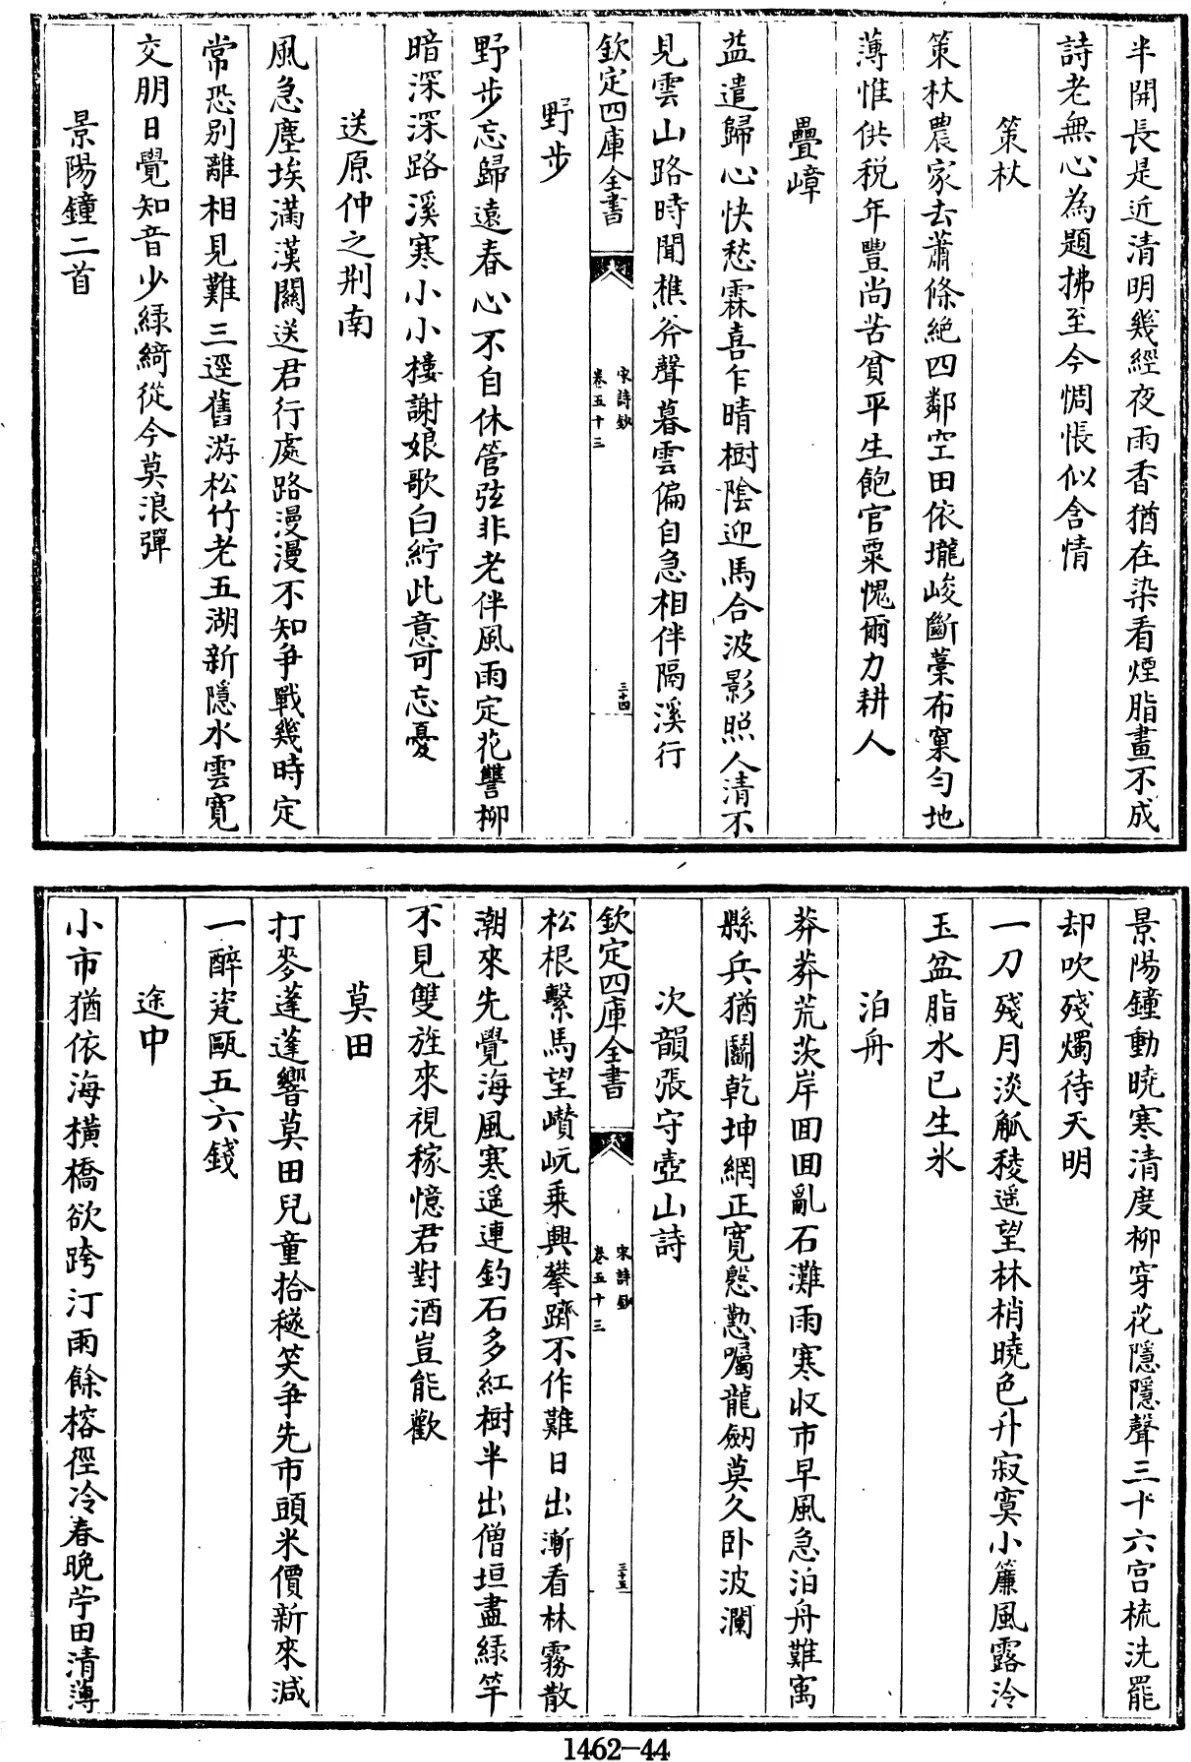 半開長是近清明幾經夜雨香猶在染看煙脂畫不成
詩老無心為題拂至今惆悵似含情
策杖
策杖農家去蕭條絶四鄰空田依壠峻斷藁布窠勻地
薄惟供税年豐尚苦貧平生飽官粟愧爾力耕人
疊嶂
益遣歸心快愁霖喜乍晴樹陰迎馬合波影照人清不
見雲山路時聞樵斧聲暮雲偏自急相伴隔溪行
欽定四庫全書
宋詩鈔
卷五十三
三十四
野步
野步忘歸遠春心不自休管弦非老伴風雨定花讐柳
暗深深路溪寒小小樓謝娘歌白紵此意可忘憂
送原仲之荆南
風急塵埃滿漢關送君行處路漫漫不知爭戰幾時定
常恐别離相見難三逕舊游松竹老五湖新隱水雲寛
交朋日覺知音少緑綺從今莫浪彈
景陽鐘二首
景陽鐘動曉寒清度柳穿花隱隱聲三十六宫梳洗罷
却吹殘燭待天明
一刀殘月淡觚稜遥望林梢曉色升寂寞小簾風露泠
玉盆脂水已生氷
泊舟
莽莽荒茨岸囬囬亂石灘雨寒收市早風急泊舟難寓
縣兵猶鬭乾坤網正寛慇懃囑龍劒莫久卧波瀾
次韻張守壺山詩
欽定四庫全書
宋詩鈔
卷五十三
三十五
松根繫馬望巑岏乗興攀躋不作難日出漸看林霧散
潮來先覺海風寒遥連釣石多紅樹半出僧垣盡緑竿
不見雙旌來視稼憶君對酒豈能歡
莫田
打麥蓬蓬響莫田兒童拾穟笑爭先市頭米價新來減
一醉瓷甌五六錢
途中
小市猶依海橫橋欲跨汀雨餘榕徑冷春晚苧田清薄
1462-44